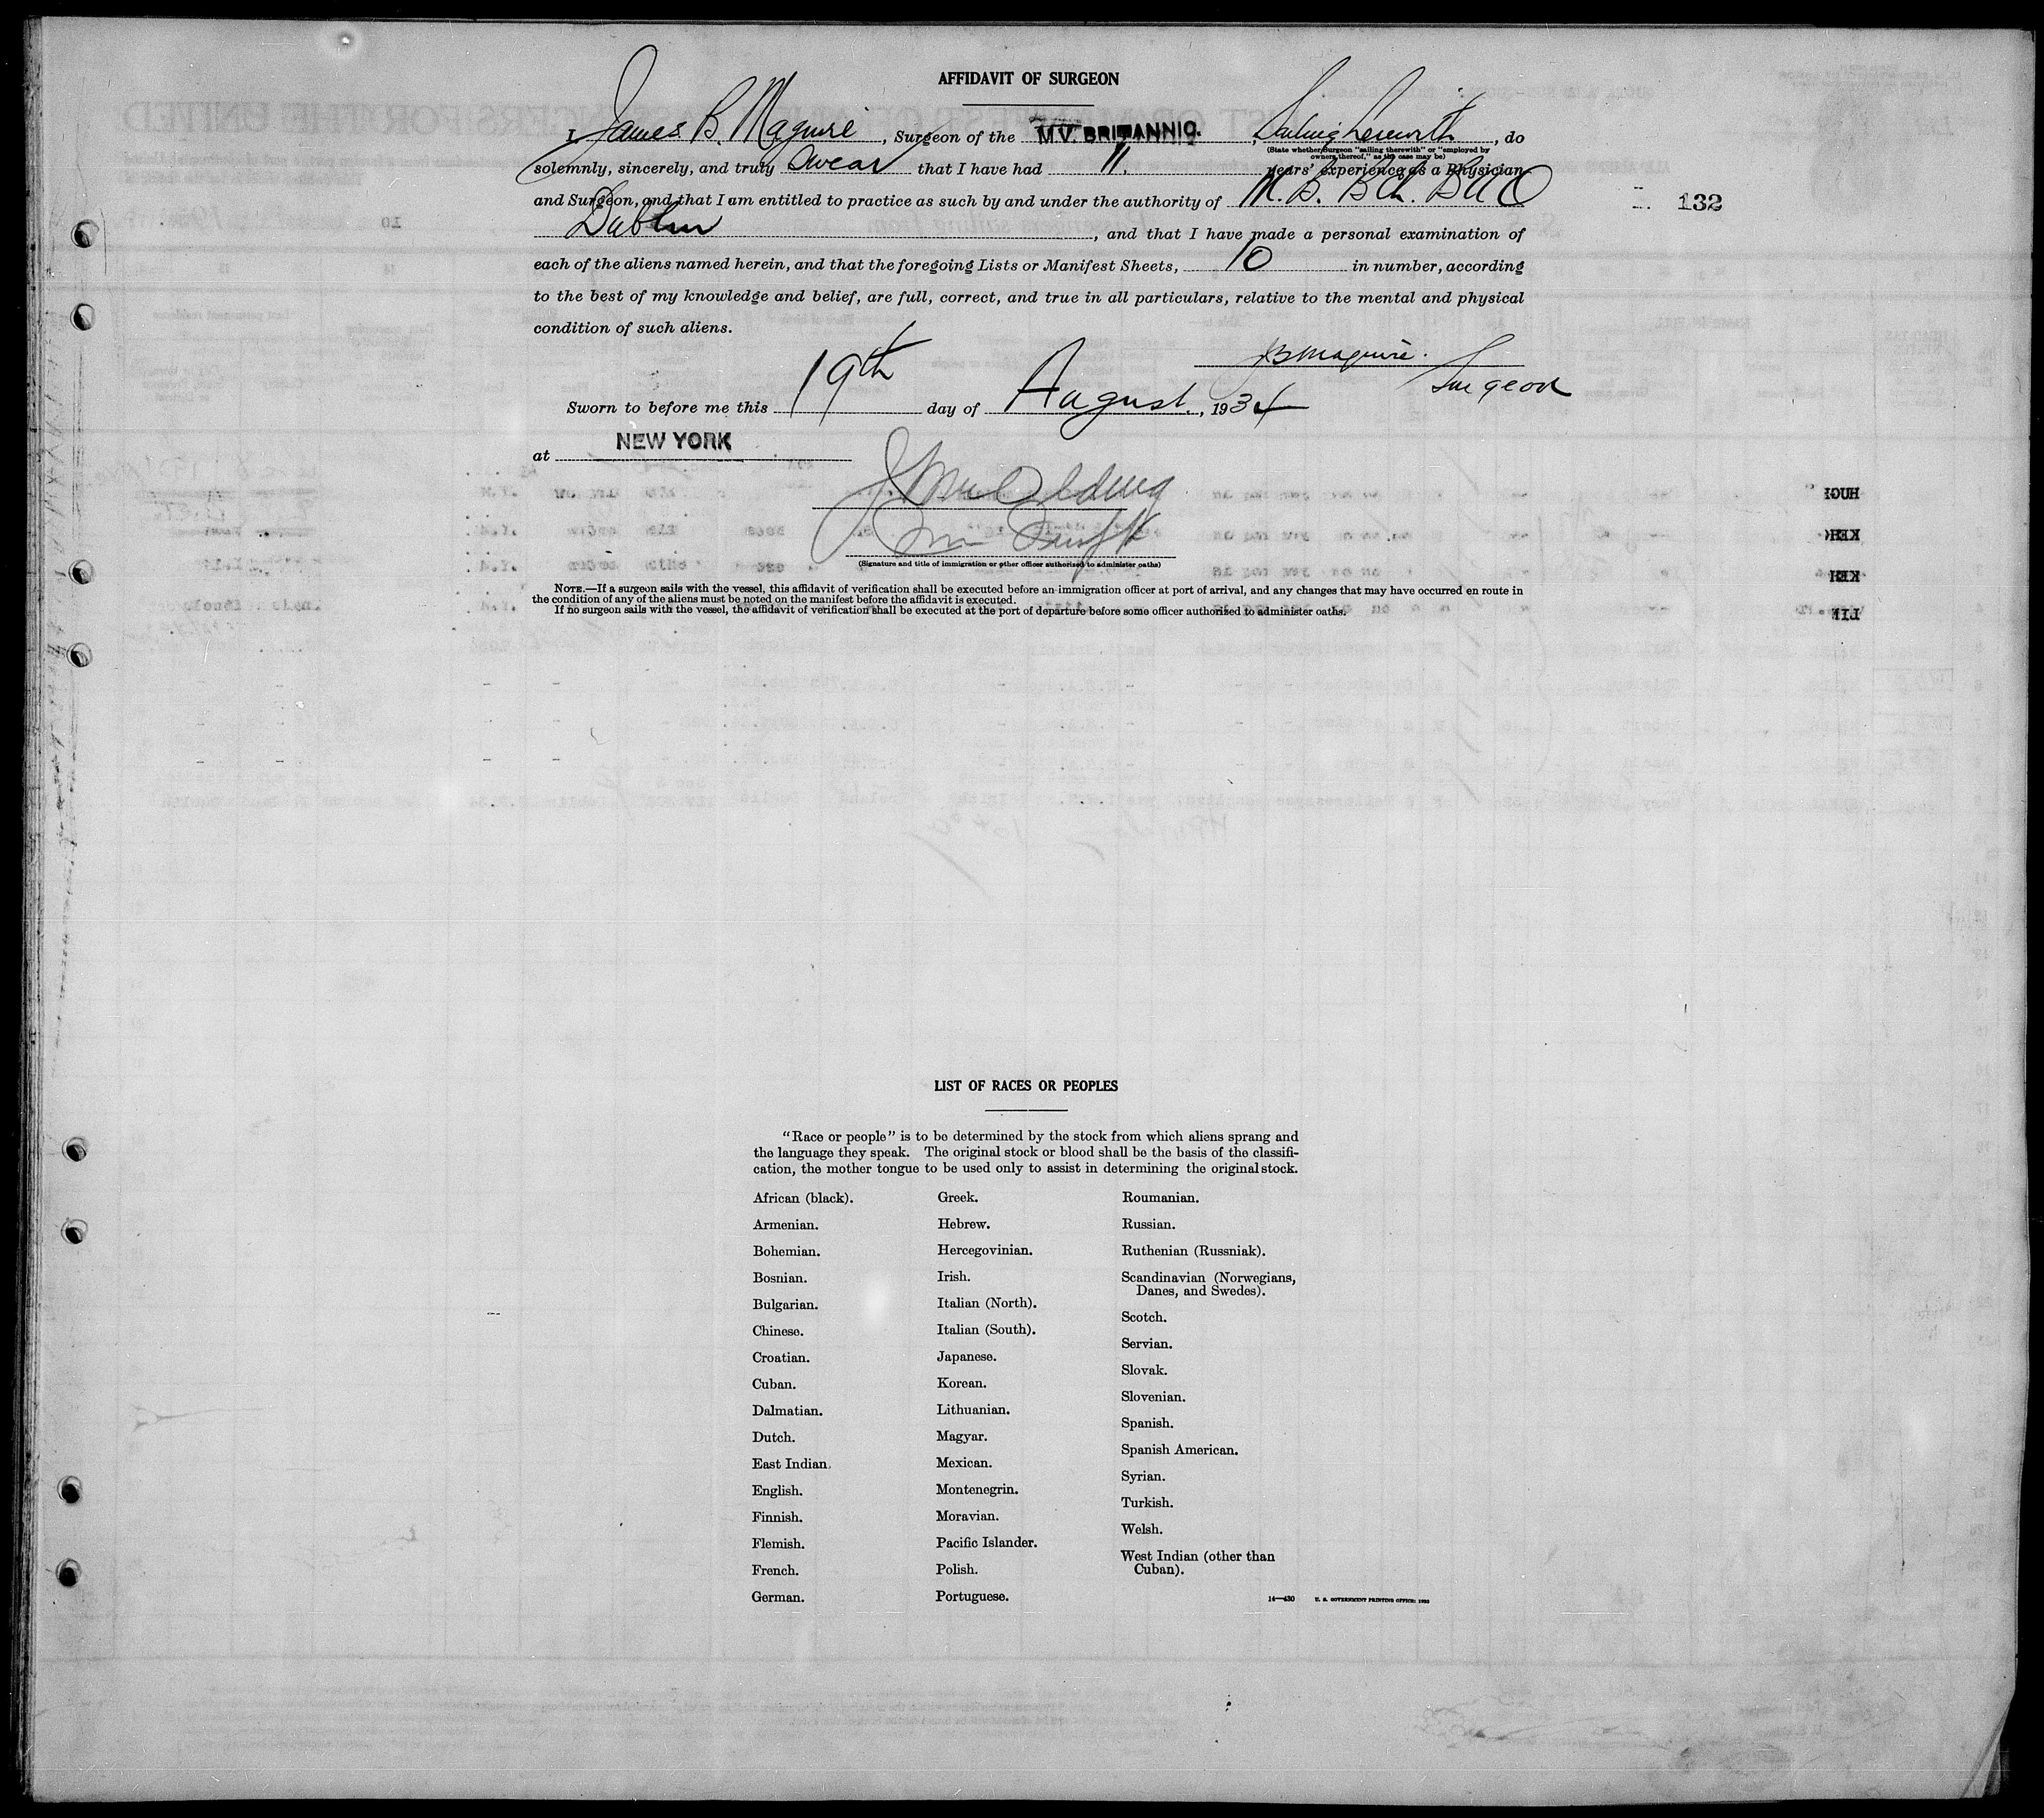 AFFIDAVIT OF SURGEON
I, James B. Maguire, Surgeon of the M.V. BRITANNIC., Sailing therewith, do
(State whether Surgeon "sailing therewith" or "employed by
owners thereof," as the case may be)
solemnly, sincerely, and truly swear that I have had 11. years' experience as a Physician
and Surgeon, and that I am entitled to practice as such by and under the authority of M.B. B.Ch. B.A.O
132
Dublin, and that I have made a personal examination of
each of the aliens named herein, and that the foregoing Lists or Manifest Sheets, 10 in number, according
to the best of my knowledge and belief, are full, correct, and true in all particulars, relative to the mental and physical
condition of such aliens.
JB Maguire.
Surgeon
Sworn to before me this 19th day of August., 1934
at NEW YORK
(Signature and title of immigration or other officer authorized to administer oaths)
NOTE.—If a surgeon sails with the vessel, this affidavit of verification shall be executed before an immigration officer at port of arrival, and any changes that may have occurred en route in
the condition of any of the aliens must be noted on the manifest before the affidavit is executed.
If no surgeon sails with the vessel, the affidavit of verification shall be executed at the port of departure before some officer authorized to administer oaths.
LIST OF RACES OR PEOPLES
"Race or people" is to be determined by the stock from which aliens sprang and
the language they speak. The original stock or blood shall be the basis of the classifi-
cation, the mother tongue to be used only to assist in determining the original stock.
African (black).
Armenian.
Bohemian.
Bosnian.
Bulgarian.
Chinese.
Croatian.
Cuban.
Dalmatian.
Dutch.
East Indian.
English.
Finnish.
Flemish.
French.
German.
Greek.
Hebrew.
Hercegovinian.
Irish.
Italian (North).
Italian (South).
Japanese.
Korean.
Lithuanian.
Magyar.
Mexican.
Montenegrin.
Moravian.
Pacific Islander.
Polish.
Portuguese.
Roumanian.
Russian.
Ruthenian (Russniak).
Scandinavian (Norwegians,
Danes, and Swedes).
Scotch.
Servian.
Slovak.
Slovenian.
Spanish.
Spanish American.
Syrian.
Turkish.
Welsh.
West Indian (other than
Cuban).
14—430 U. S. GOVERNMENT PRINTING OFFICE: